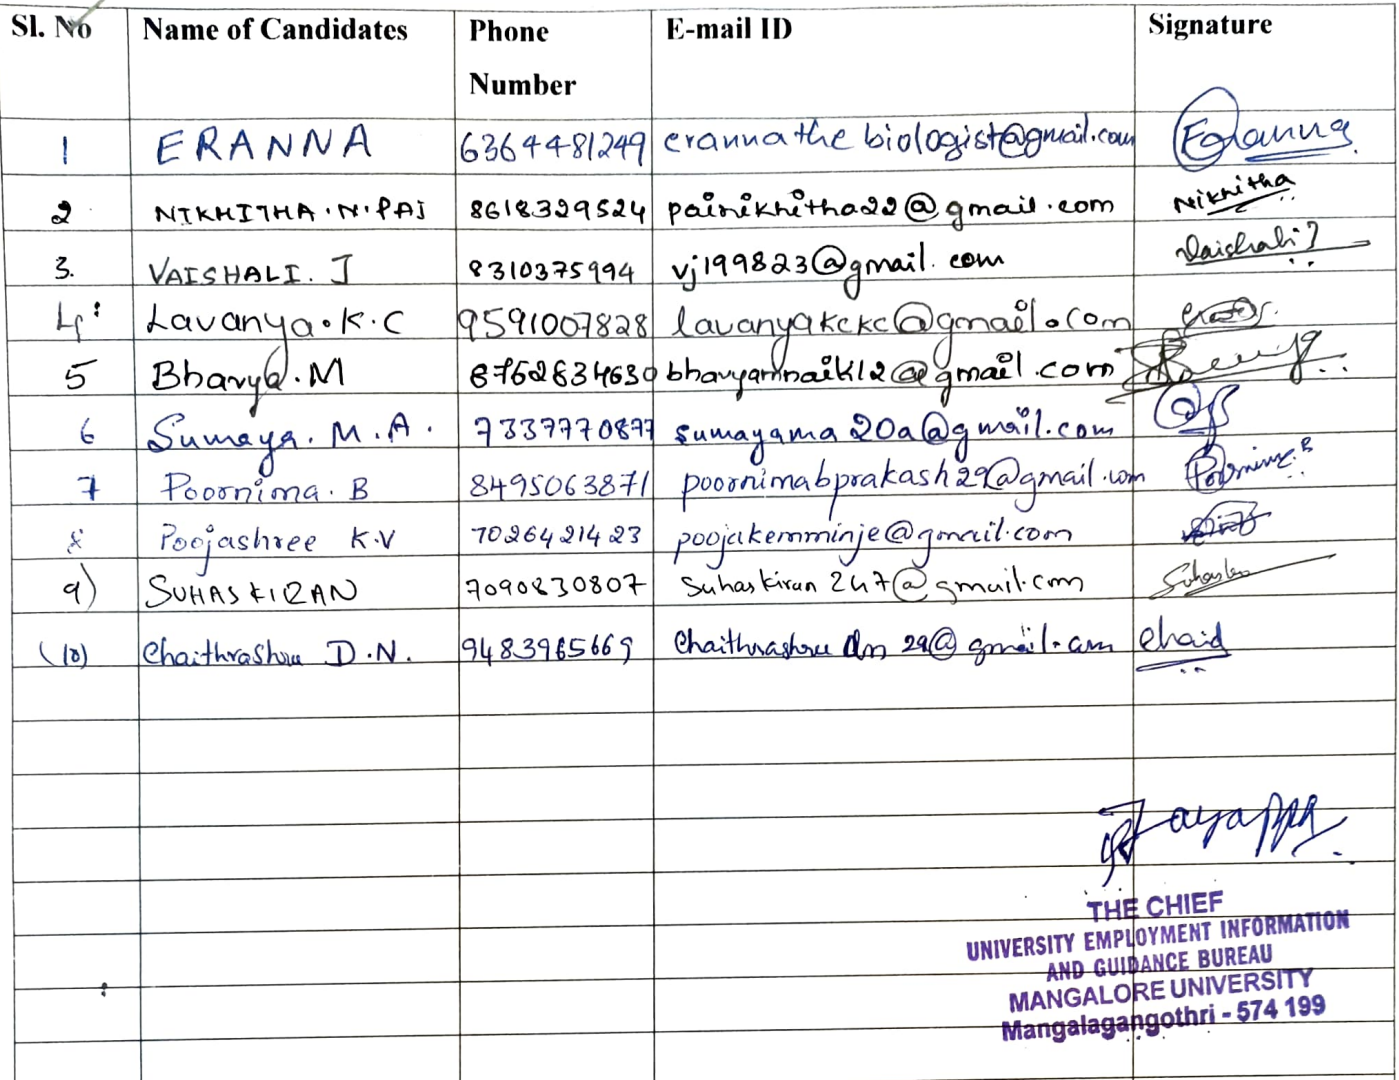 Sl. No Name of Candidates Phone Number E-mail ID Signature
1 ERANNA 6364481249 erannathebiologist@gmail.com Eranna
2 NIKHITHA.N.PAI 8618329524 painikhitha22@gmail.com Nikhitha
3. VAISHALI. J 8310375994 vj199823@gmail.com Vaishali J
4. Lavanya.K.C 9591007828 lavanyakckc@gmail.com
5 Bhavya.M 8762834630 bhavyamnaik12@gmail.com
6 Sumaya. M.A. 7337770877 sumayama20a@gmail.com
7 Poornima. B 8495063871 poornimabprakash29@gmail.com Poornima.B
8 Poojashree K.V 7026421423 poojakemminje@gmail.com
9) SUHAS KIRAN 7090830807 Suhaskiran247@gmail.com
(10) Chaithrashree D.N. 9483965669 Chaithrashree dn 29@gmail.com Chaid
Jayappa
THE CHIEF
UNIVERSITY EMPLOYMENT INFORMATION
AND GUIDANCE BUREAU
MANGALORE UNIVERSITY
Mangalagangothri - 574 199